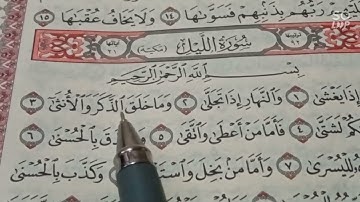 ـهِمْ رَبُّهُم بِذَنۢبِهِمْ فَسَوَّىٰهَا ١٤ وَلَا يَخَافُ عُقْبَـٰهَا ١٥
سُورَةُ اللَّيْلِ مَكِّيَّة
بِسْمِ اللَّهِ الرَّحْمَٰنِ الرَّحِيمِ
إِذَا يَغْشَىٰ ١ وَالنَّهَارِ إِذَا تَجَلَّىٰ ٢ وَمَا خَلَقَ الذَّكَرَ وَالْأُنثَىٰ ٣
ـكُمْ لَشَتَّىٰ ٤ فَأَمَّا مَنْ أَعْطَىٰ وَاتَّقَىٰ ٥ بِالْحُسْنَىٰ ٦
لِلْيُسْرَىٰ ٧ وَأَمَّا مَن بَخِلَ وَاسْتَـ وَكَذَّبَ بِالْحُسْنَىٰ